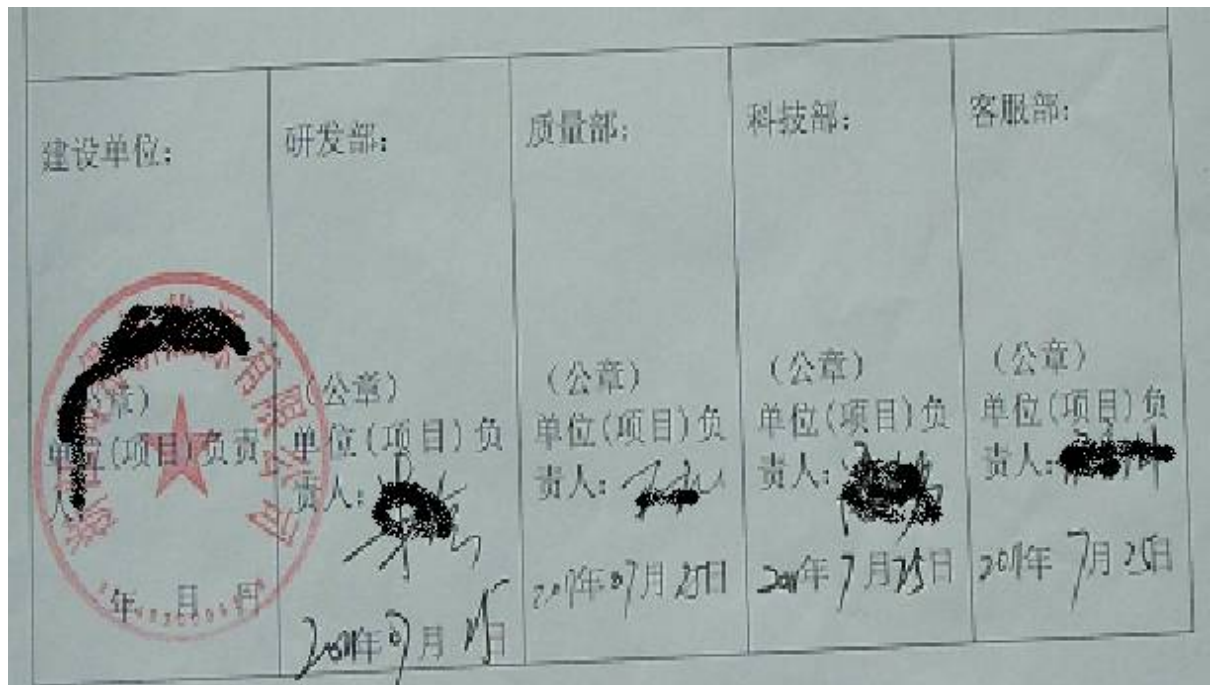 建设单位:
研发部:
质量部:
科技部:
客服部:
章)
单位(项目)负责
人:
年 月 日
有限公司
(公章)
单位(项目)负
责人:
年07月 日
(公章)
单位(项目)负
责人:
年07月25日
(公章)
单位(项目)负
责人:
2011年7月25日
(公章)
单位(项目)负
责人:
2011年7月25日